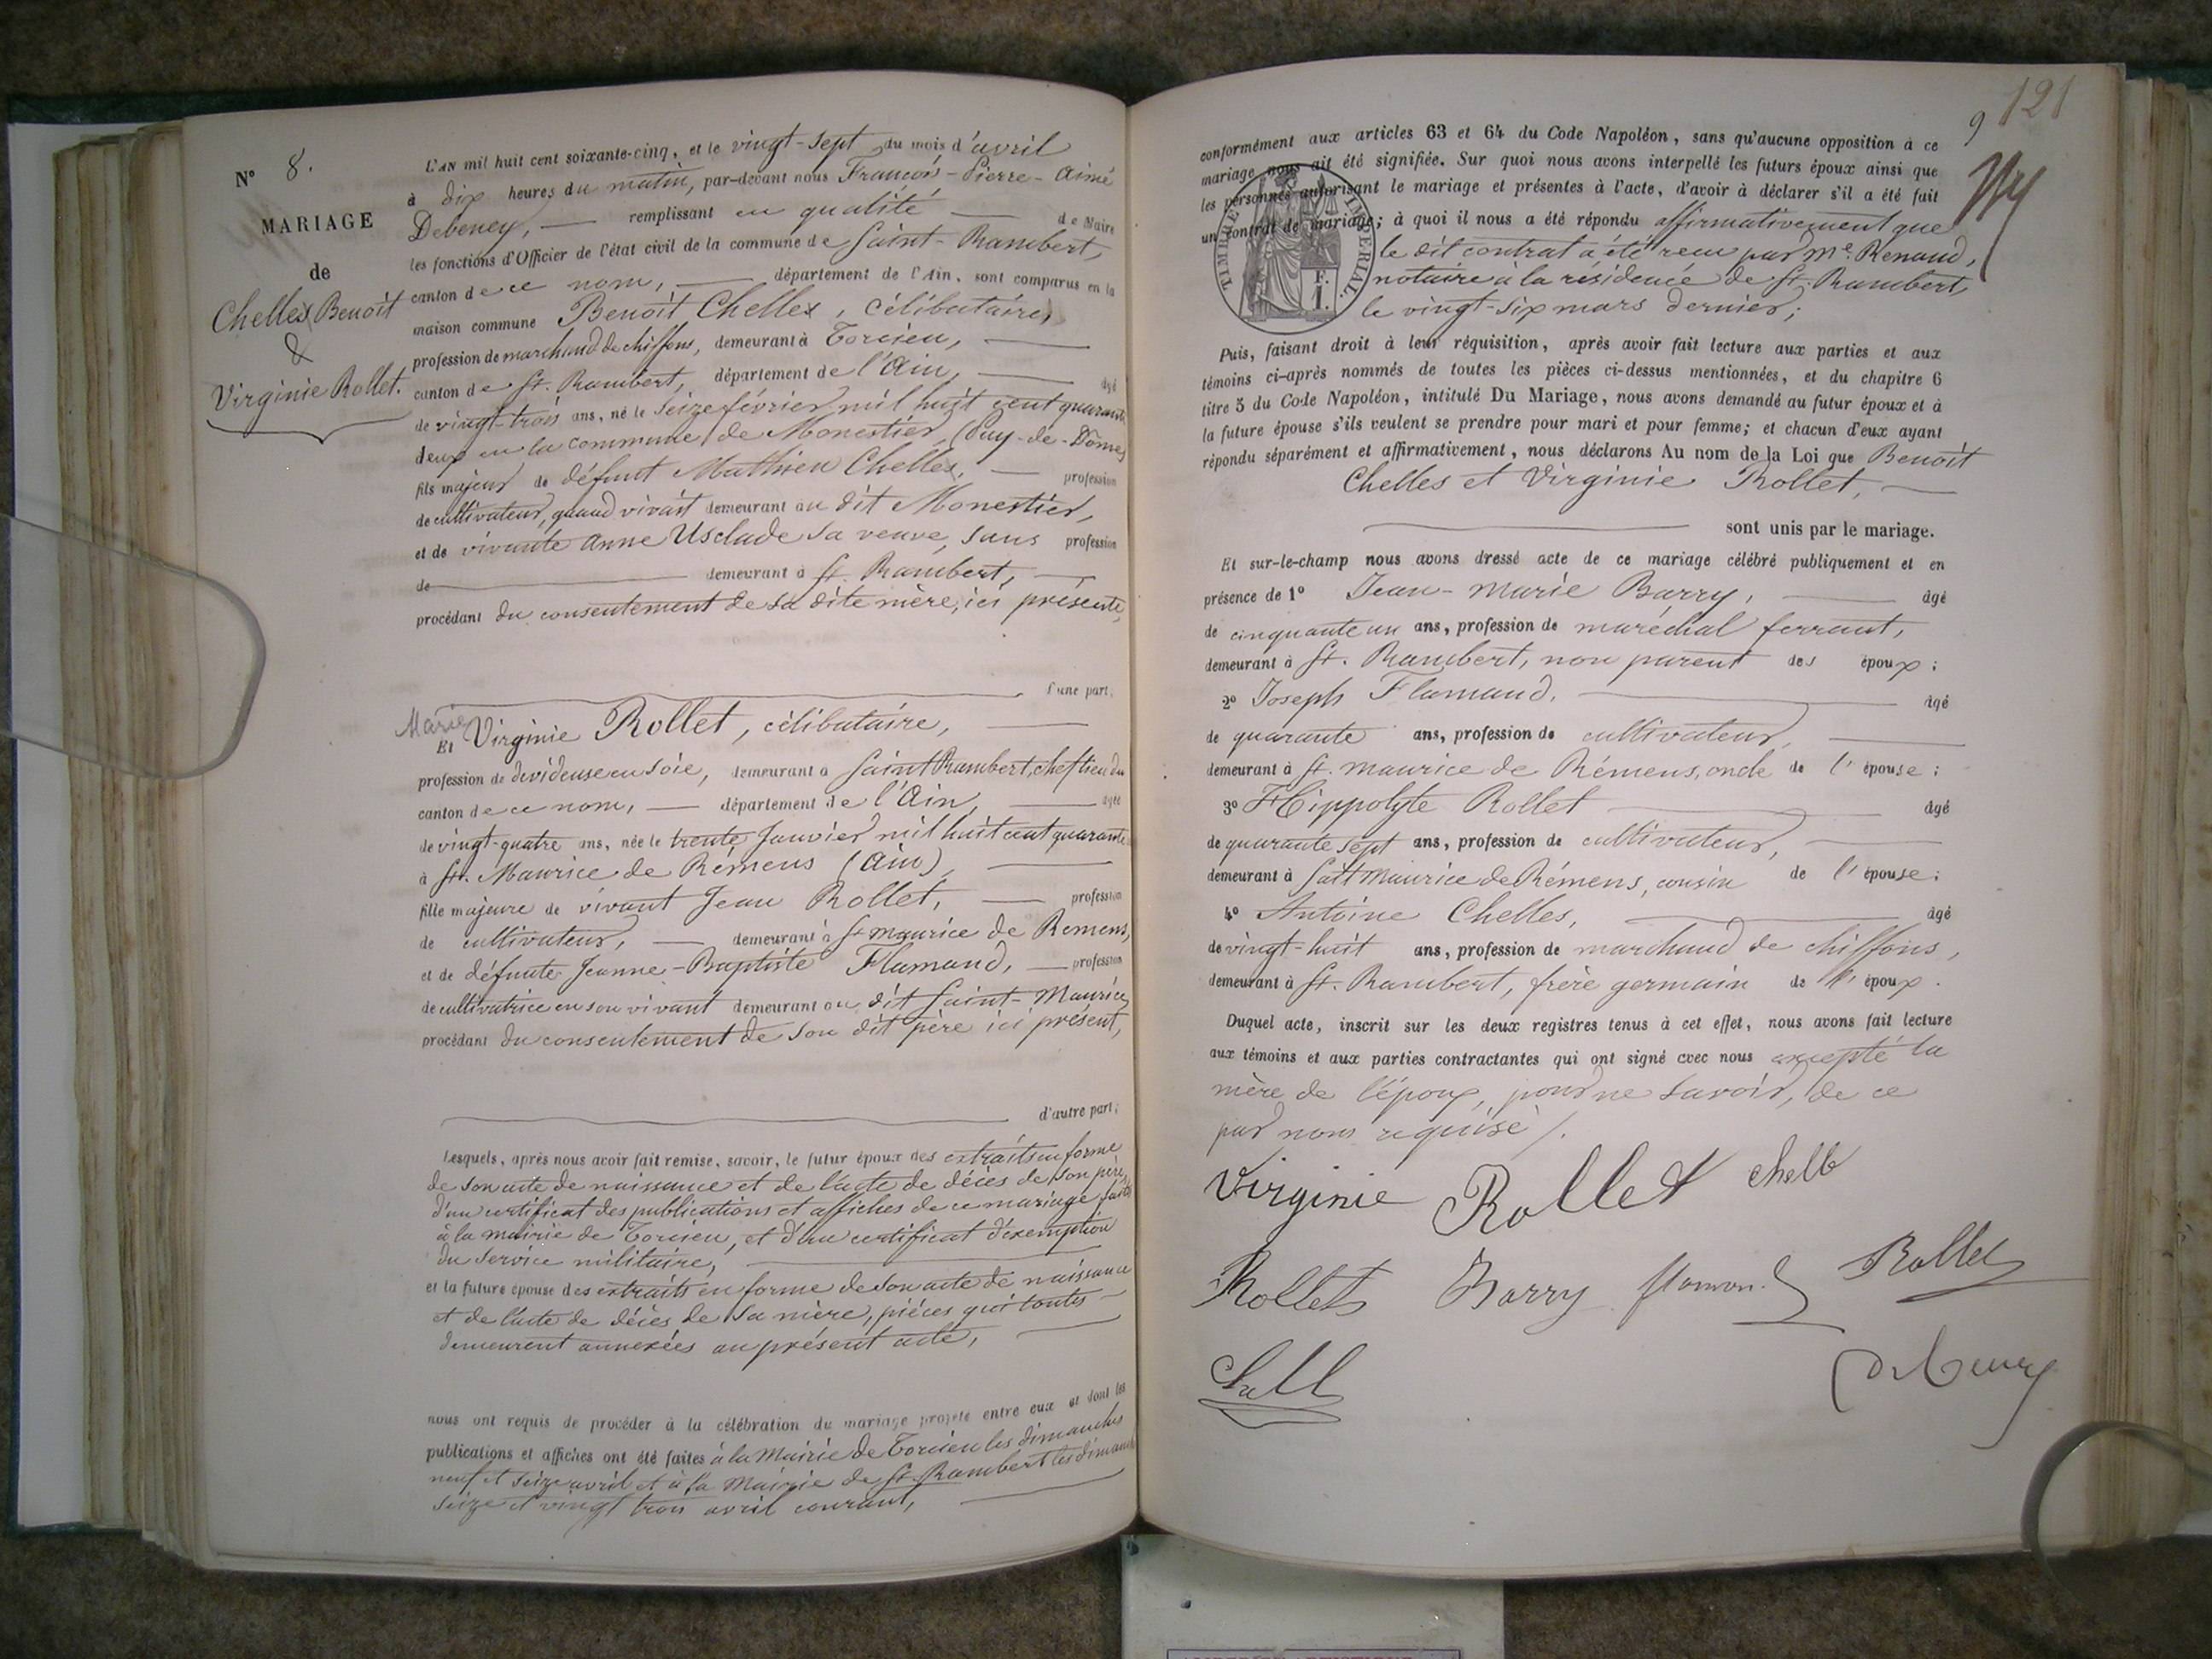 N° 8.
MARIAGE
de
Chelles Benoit
&
Virginie Rollet.
L'AN mil huit cent soixante-cinq, et le vingt-sept du mois d'avril
à dix heures du matin, par-devant nous François-Pierre-Aimé
Debeney, remplissant en qualité de Maire
les fonctions d'Officier de l'état civil de la commune de Saint-Rambert,
canton de ce nom, département de l'Ain, sont comparus en la
maison commune Benoit Chelles, célibataire,
profession de marchand de chiffons, demeurant à Torcieu,
canton de St. Rambert, département de l'Ain, âgé
de vingt-trois ans, né le seize février mil huit cent quarante
deux en la commune de Monestier, (Puy-de-Dôme)
fils majeur de défunt Mathieu Chelles, profession
de cultivateur, quand vivait demeurant au dit Monestier,
et de vivante Anne Usclade sa veuve, sans profession
de demeurant à St. Rambert,
procédant du consentement de sa dite mère, ici présente,
d'une part;
Marie
Et Virginie Rollet, célibataire,
profession de devideuse en soie, demeurant à Saint Rambert, chef lieu du
canton de ce nom, département de l'Ain, âgée
de vingt-quatre ans, née le trente Janvier mil huit cent quarante
à St. Maurice de Rémens (Ain),
fille majeure de vivant Jean Rollet, profession
de cultivateur, demeurant à St Maurice de Remens,
et de défunte Jeanne-Baptiste Flamand, profession
de cultivatrice en son vivant demeurant au dit Saint-Maurice,
procédant du consentement de son dit père ici présent,
d'autre part;
Lesquels, après nous avoir fait remise, savoir, le futur époux des extraits en forme
de son acte de naissance et de l'acte de décès de son père,
d'un certificat des publications et affiches de ce mariage faits
à la mairie de Torcieu, et d'un certificat d'exemption
du service militaire,
et la future épouse des extraits en forme de son acte de naissance
et de l'acte de décès de sa mère, pièces qui toutes
demeurent annexées au présent acte,
nous ont requis de procéder à la célébration du mariage projeté entre eux et dont les
publications et affiches ont été faites à la Mairie de Torcieu les dimanches
neuf et seize avril et à la Mairie de St. Rambert les dimanches
seize et vingt trois avril courant,
9 121
conformément aux articles 63 et 64 du Code Napoléon, sans qu'aucune opposition à ce
mariage nous ait été signifiée. Sur quoi nous avons interpellé les futurs époux ainsi que
les personnes autorisant le mariage et présentes à l'acte, d'avoir à déclarer s'il a été fait
un contrat de mariage; à quoi il nous a été répondu affirmativement que
le dit contrat a été reçu par Me. Renaud,
notaire à la résidence de St. Rambert,
le vingt-six mars dernier;
TIMBRE IMPERIAL
F.
1.
Puis, faisant droit à leur réquisition, après avoir fait lecture aux parties et aux
témoins ci-après nommés de toutes les pièces ci-dessus mentionnées, et du chapitre 6
titre 5 du Code Napoléon, intitulé Du Mariage, nous avons demandé au futur époux et à
la future épouse s'ils veulent se prendre pour mari et pour femme; et chacun d'eux ayant
répondu séparément et affirmativement, nous déclarons Au nom de la Loi que Benoit
Chelles et Virginie Rollet,
sont unis par le mariage.
Et sur-le-champ nous avons dressé acte de ce mariage célébré publiquement et en
présence de 1° Jean-Marie Barry, âgé
de cinquante un ans, profession de maréchal ferrant,
demeurant à St. Rambert, non parent des époux;
2° Joseph Flamand, âgé
de quarante ans, profession de cultivateur,
demeurant à St. Maurice de Rémens, oncle de l'épouse;
3° Hippolyte Rollet âgé
de quarante sept ans, profession de cultivateur,
demeurant à Saint Maurice de Rémens, cousin de l'épouse;
4° Antoine Chelles, âgé
de vingt-huit ans, profession de marchand de chiffons,
demeurant à St. Rambert, frère germain de l'époux.
Duquel acte, inscrit sur les deux registres tenus à cet effet, nous avons fait lecture
aux témoins et aux parties contractantes qui ont signé avec nous excepté la
mère de l'époux, pour ne savoir, de ce
par nous requise /.
Virginie Rollet Chelle
Rollet Barry flamand Rollet
Chell
Debeney